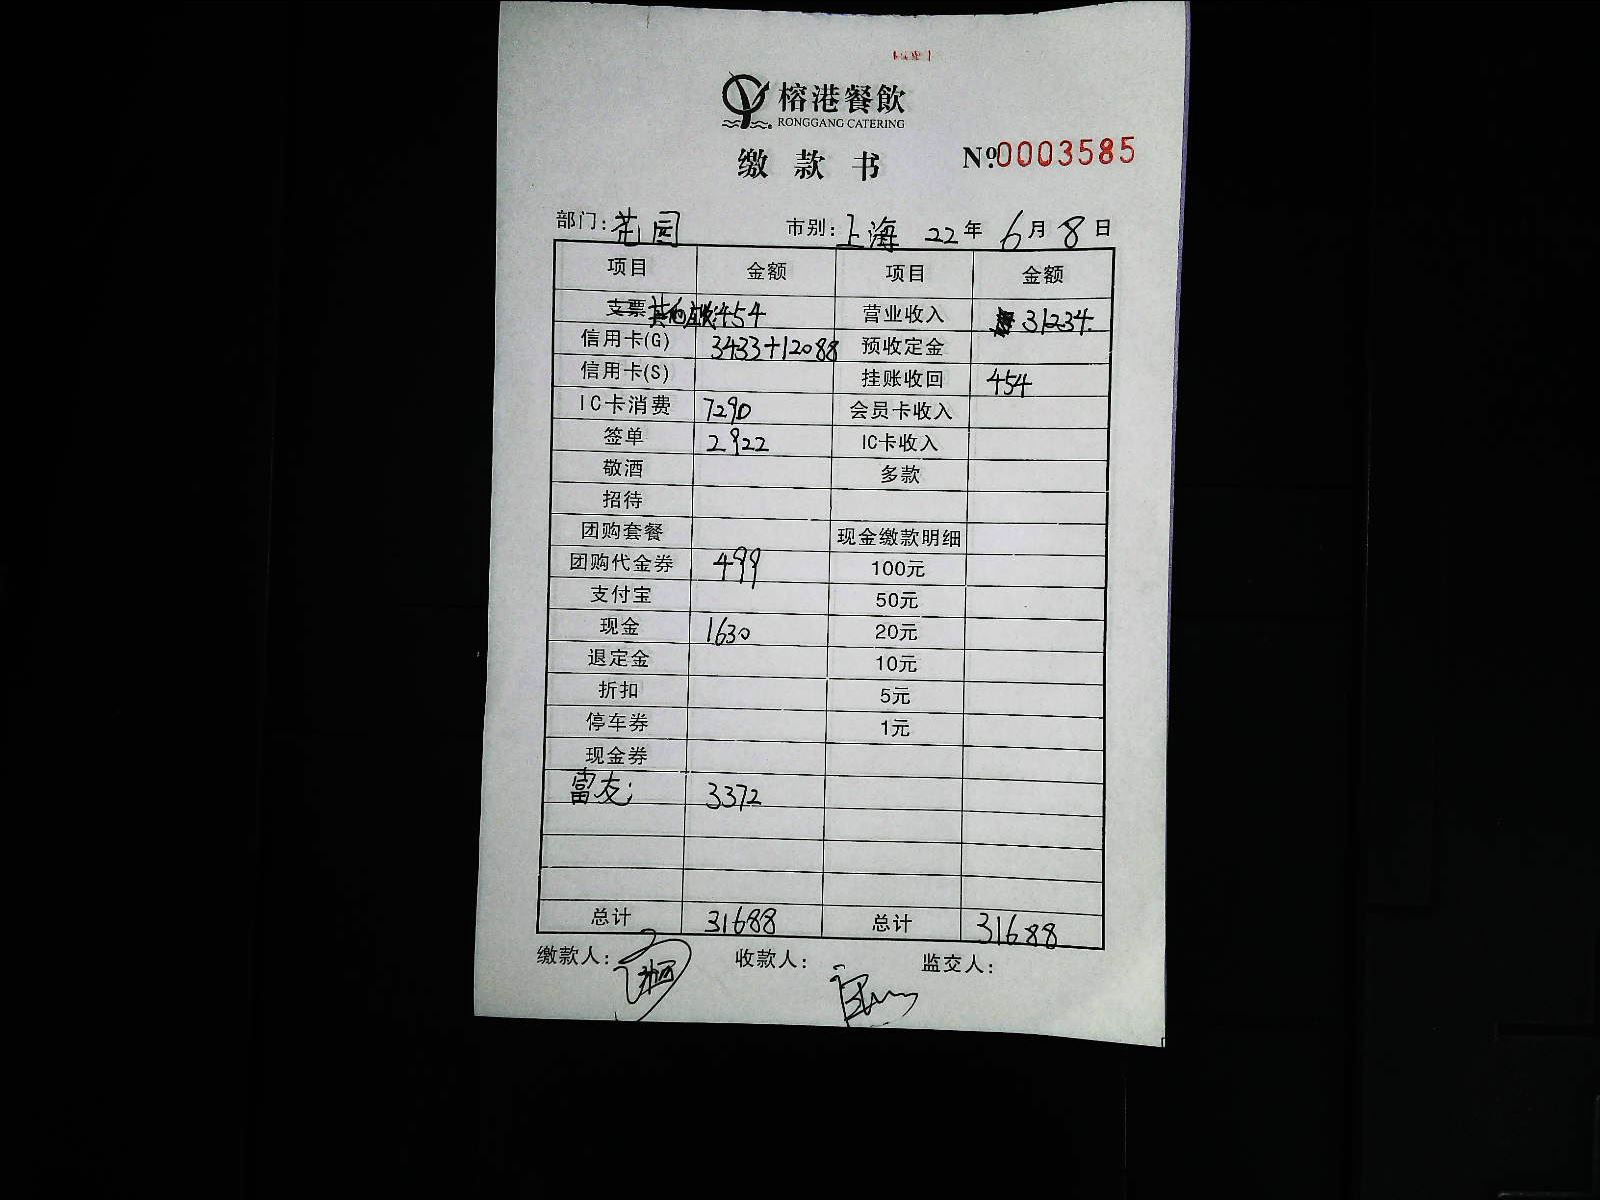 榕港餐飲
RONGGANG CATERING
缴款书 №0003585
部门：花园 市别：上海 22年 6月8日
项目 金额 项目 金额
支票 其他应收 454 营业收入 31234.
信用卡(G) 3433+12088 预收定金
信用卡(S) 挂账收回 454
IC卡消费 7290 会员卡收入
签单 2922 IC卡收入
敬酒 多款
招待
团购套餐 现金缴款明细
团购代金券 499 100元
支付宝 50元
现金 1630 20元
退定金 10元
折扣 5元
停车券 1元
现金券
富友； 3372
总计 31688 总计 31688
缴款人： 收款人： 监交人：